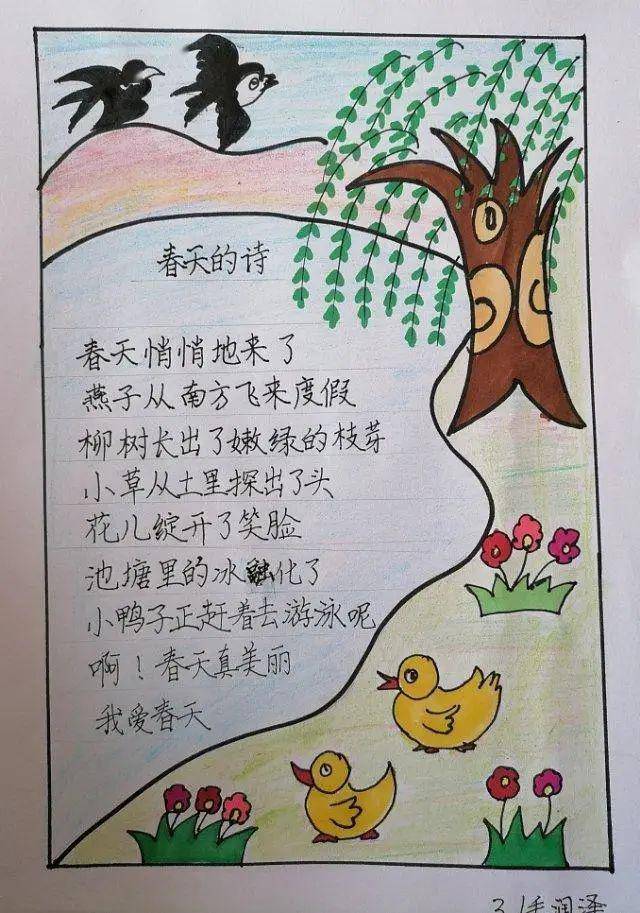 春天的诗
春天悄悄地来了
燕子从南方飞来度假
柳树长出了嫩绿的枝芽
小草从土里探出了头
花儿绽开了笑脸
池塘里的冰融化了
小鸭子正赶着去游泳呢
啊！春天真美丽
我爱春天
3.1毛润泽